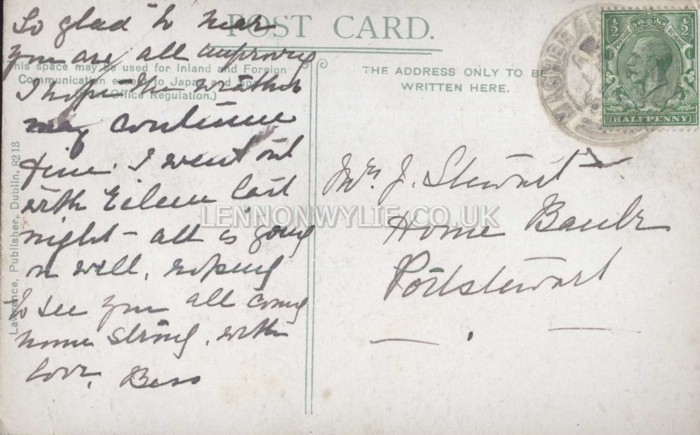 POST CARD.
This space may be used for Inland and Foreign
Communication
Office Regulation.)
THE ADDRESS ONLY TO BE
WRITTEN HERE.
So glad to hear
you are all improving
I hope the weather
may continue
fine. I went out
with Eileen last
night - all is going
on well, hoping
to see you all coming
home strong, with
love, Bess
Mrs J. Stewart
Home Bank
Portstewart
Lawrance, Publisher, Dublin, 8218
MAGHERA
½ ½
HALFPENNY
LENNONWYLIE.CO.UK